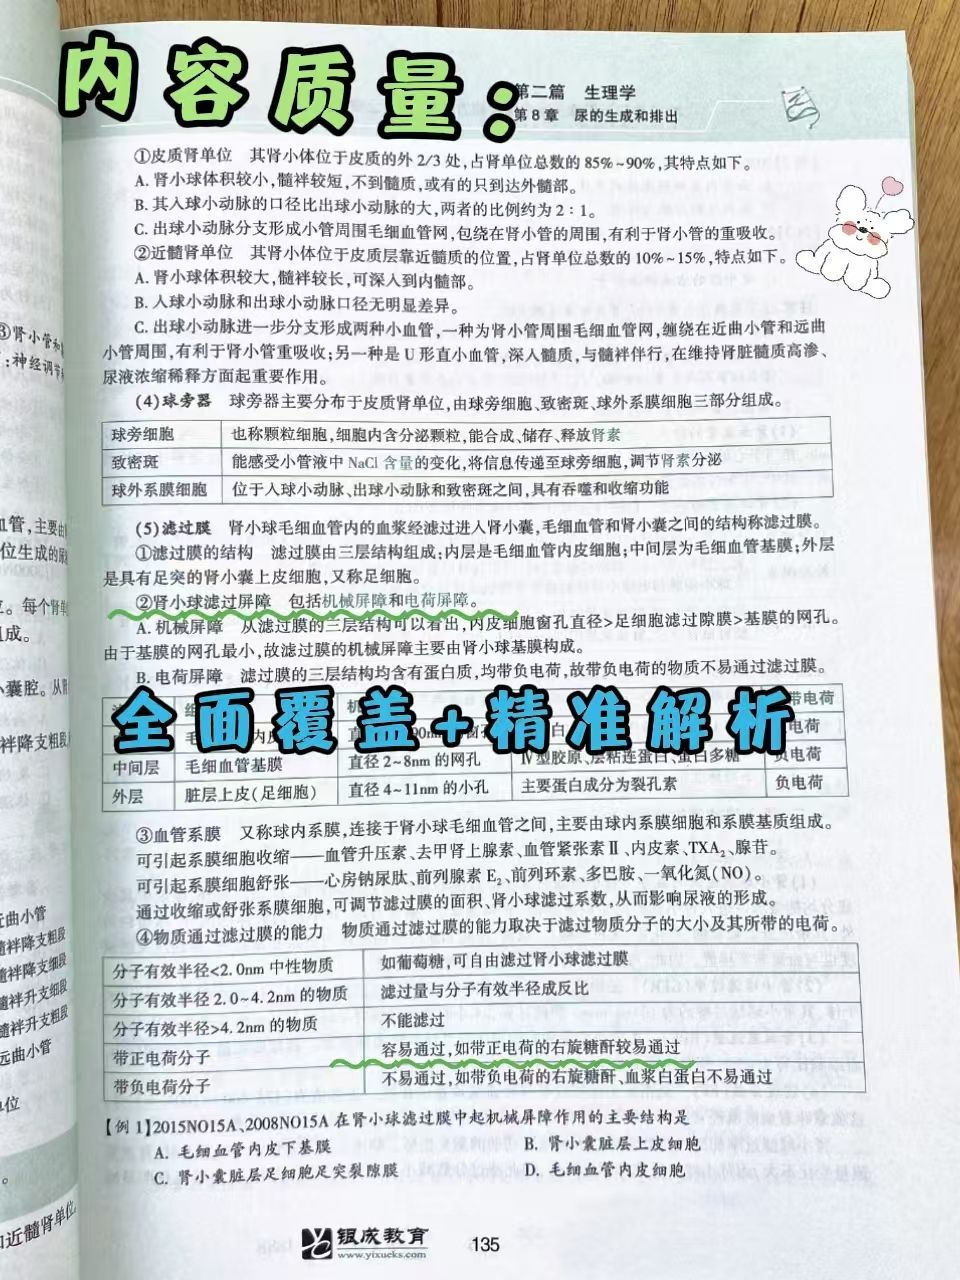 内容质量:
第二篇 生理学
第8章 尿的生成和排出
①皮质肾单位 其肾小体位于皮质的外2/3处,占肾单位总数的85%~90%,其特点如下。
A. 肾小球体积较小,髓袢较短,不到髓质,或有的只到达外髓部。
B. 其入球小动脉的口径比出球小动脉的大,两者的比例约为2:1。
C. 出球小动脉分支形成小管周围毛细血管网,包绕在肾小管的周围,有利于肾小管的重吸收。
②近髓肾单位 其肾小体位于皮质层靠近髓质的位置,占肾单位总数的10%~15%,特点如下。
A. 肾小球体积较大,髓袢较长,可深入到内髓部。
B. 入球小动脉和出球小动脉口径无明显差异。
C. 出球小动脉进一步分支形成两种小血管,一种为肾小管周围毛细血管网,缠绕在近曲小管和远曲
小管周围,有利于肾小管重吸收;另一种是U形直小血管,深入髓质,与髓袢伴行,在维持肾脏髓质高渗、
尿液浓缩稀释方面起重要作用。
(4)球旁器 球旁器主要分布于皮质肾单位,由球旁细胞、致密斑、球外系膜细胞三部分组成。
球旁细胞 也称颗粒细胞,细胞内含分泌颗粒,能合成、储存、释放肾素
致密斑 能感受小管液中NaCl含量的变化,将信息传递至球旁细胞,调节肾素分泌
球外系膜细胞 位于入球小动脉、出球小动脉和致密斑之间,具有吞噬和收缩功能
(5)滤过膜 肾小球毛细血管内的血浆经滤过进入肾小囊,毛细血管和肾小囊之间的结构称滤过膜。
①滤过膜的结构 滤过膜由三层结构组成;内层是毛细血管内皮细胞;中间层为毛细血管基膜;外层
是具有足突的肾小囊上皮细胞,又称足细胞。
②肾小球滤过屏障 包括机械屏障和电荷屏障。
A. 机械屏障 从滤过膜的三层结构可以看出,内皮细胞窗孔直径>足细胞滤过隙膜>基膜的网孔。
由于基膜的网孔最小,故滤过膜的机械屏障主要由肾小球基膜构成。
B. 电荷屏障 滤过膜的三层结构均含有蛋白质,均带负电荷,故带负电荷的物质不易通过滤过膜。
带电荷
全面覆盖+精准解析
负电荷
中间层 毛细血管基膜 直径2~8nm的网孔 Ⅳ型胶原、层粘连蛋白、蛋白多糖 负电荷
外层 脏层上皮(足细胞) 直径4~11nm的小孔 主要蛋白成分为裂孔素 负电荷
③血管系膜 又称球内系膜,连接于肾小球毛细血管之间,主要由球内系膜细胞和系膜基质组成。
可引起系膜细胞收缩——血管升压素、去甲肾上腺素、血管紧张素Ⅱ、内皮素、TXA₂、腺苷。
可引起系膜细胞舒张——心房钠尿肽、前列腺素E₂、前列环素、多巴胺、一氧化氮(NO)。
通过收缩或舒张系膜细胞,可调节滤过膜的面积、肾小球滤过系数,从而影响尿液的形成。
④物质通过滤过膜的能力 物质通过滤过膜的能力取决于滤过物质分子的大小及其所带的电荷。
分子有效半径<2.0nm中性物质 如葡萄糖,可自由滤过肾小球滤过膜
分子有效半径2.0~4.2nm的物质 滤过量与分子有效半径成反比
分子有效半径>4.2nm的物质 不能滤过
带正电荷分子 容易通过,如带正电荷的右旋糖酐较易通过
带负电荷分子 不易通过,如带负电荷的右旋糖酐、血浆白蛋白不易通过
【例1】2015NO15A、2008NO15A在肾小球滤过膜中起机械屏障作用的主要结构是
A. 毛细血管内皮下基膜 B. 肾小囊脏层上皮细胞
C. 肾小囊脏层足细胞足突裂隙膜 D. 毛细血管内皮细胞
银成教育
www.yixueks.com
135
③肾小管和
;神经调节
血管,主要由
位生成的尿
。每个肾单
组成。
小囊腔。从
近曲小管
髓袢降支粗段
髓袢降支细段
髓袢升支细段
髓袢升支粗段
远曲小管
单位
和近髓肾单位